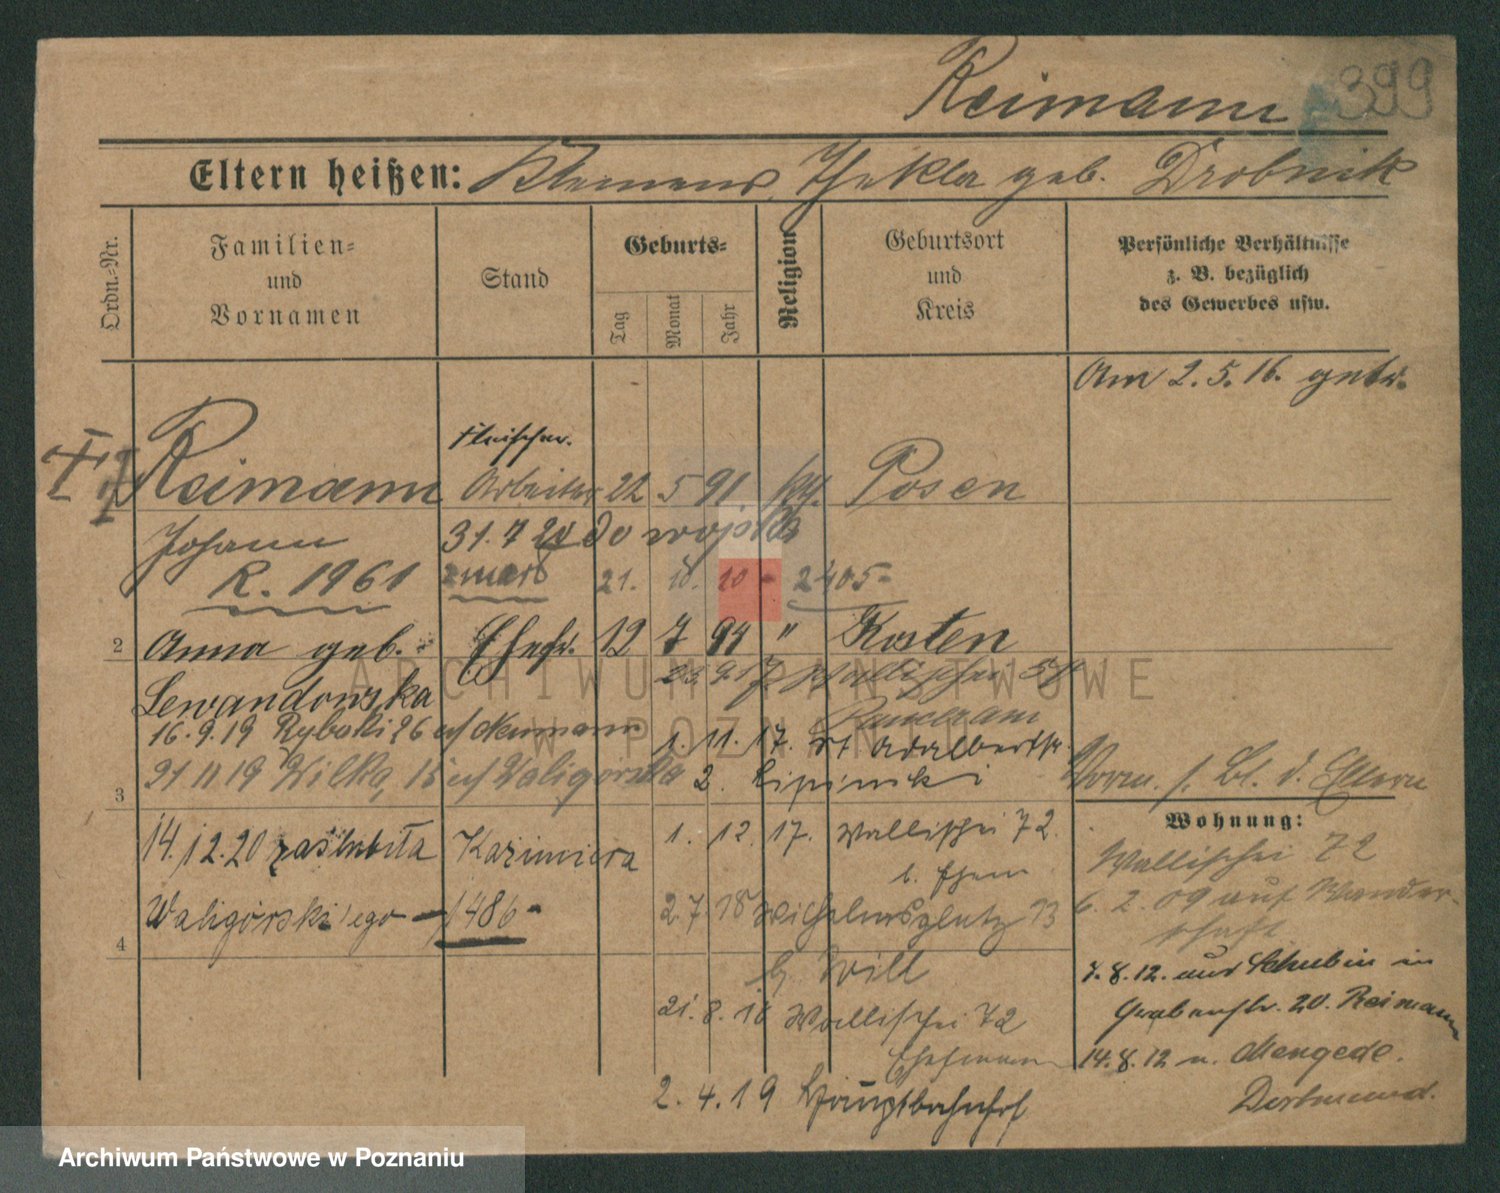 Reimann
399
Eltern heißen: Klemens, Thekla geb. Drobnik
Ordn.-Nr.
Familien-
und
Vornamen
Stand
Geburts-
Tag
Monat
Jahr
Religion
Geburtsort
und
Kreis
Persönliche Verhältnisse
z. B. bezüglich
des Gewerbes usw.
Am 2. 5. 16. getr.
Fleischer.
Reimann Arbeiter 22 5 91 kth. Posen
Johann 31. 7 20 do wojska
R. 1961 zmarł 21. 10. 10 - 2405 -
2 Anna geb. Ehefr. 12 7 94 " Kosten
Lewandowska 23. 9. 17. Wallischei
16. 9. 19 Rybaki 26 u/ Neumann 1. 11. 17. St Adalbertstr.
3 21 11 19 Wilka, 15 u/ Waligórska 2. Lipinski
Vorm. s. Bl. d. Eltern
Wohnung:
14. 12. 20 zaślubiła Kazimiera 1. 12. 17. Wallischei 72.
b. Ehem
4 Waligórski'ego - 1486 - 2. 7. 18 Wilhelmsplatz 13
b. Will
21. 8. 18 Wallischei 72
Ehemann
2. 4. 19 Hauptbahnhof
Wallischei 72
6. 2. 09 auf Wander-
schaft
7. 8. 12. aus Schubin in
Grabenstr. 20. Reimann
14. 8. 12 n. Mengede.
Dortmund.
ARCHIWUM PAŃSTWOWE
W POZNANIU
Archiwum Państwowe w Poznaniu